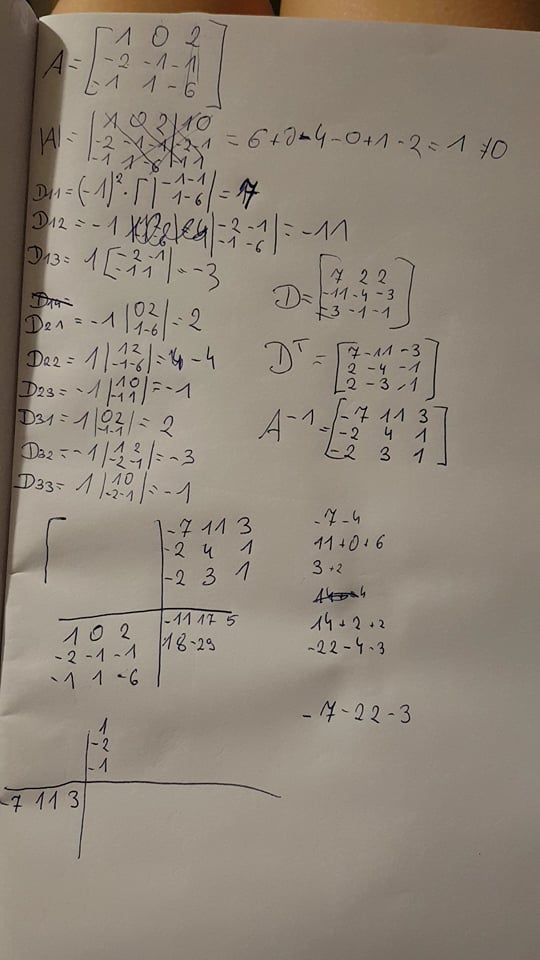 A = [ 1 0 2
-2 -1 -1
-1 1 -6 ]
|A| = | 1 0 2 | 1 0
-2 -1 -1 | -2 -1 = 6+0-4-0+1-2 = 1 ≠0
-1 1 -6 | -1 1
D11 = (-1)² · | -1 -1
1 -6 | = 7
D12 = -1 | -2 -1
-1 -6 | = -11
D13 = 1 [ -2 -1
-1 1 | = -3
D21 = -1 | 0 2
1 -6 | = 2
D22 = 1 | 1 2
-1 -6 | = -4
D23 = -1 | 1 0
-1 1 | = -1
D31 = 1 | 0 2
-1 -1 | = 2
D32 = -1 | 1 2
-2 -1 | = -3
D33 = 1 | 1 0
-2 -1 | = -1
D = [ 7 2 2
-11 -4 -3
-3 -1 -1 ]
D^T = [ 7 -11 -3
2 -4 -1
2 -3 -1 ]
A^-1 = [ -7 11 3
-2 4 1
-2 3 1 ]
-7 11 3
-2 4 1
-2 3 1
1 0 2 | -11 17 5
-2 -1 -1 | 18 -29
-1 1 -6
-7-4
11+0+6
3+2
14+2+2
-22-4-3
-7-22-3
1
-2
-1
-7 11 3